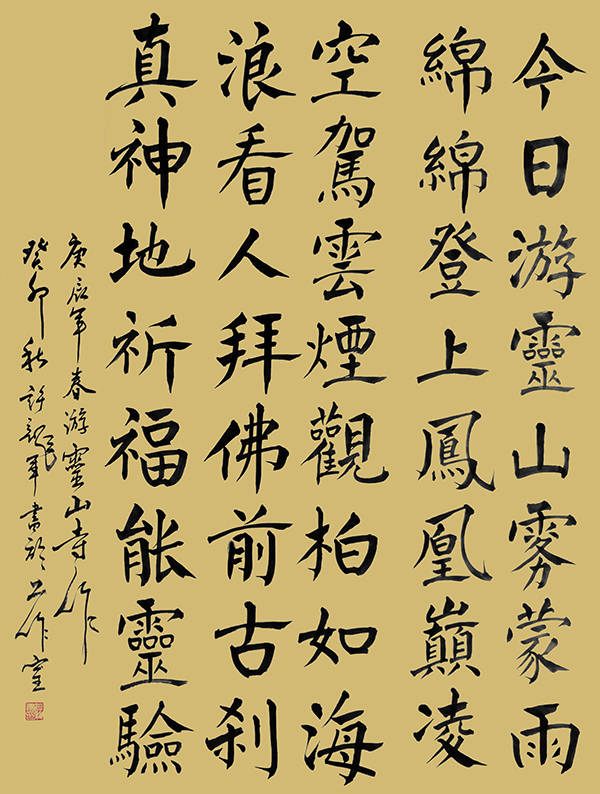 今日游靈山霧蒙雨
綿綿登上鳳凰巔凌
空駕雲煙觀柏如海
浪看人拜佛前古刹
真神地祈福能靈驗
庚辰年春游靈山寺作
癸卯秋許龍軍書於工作室